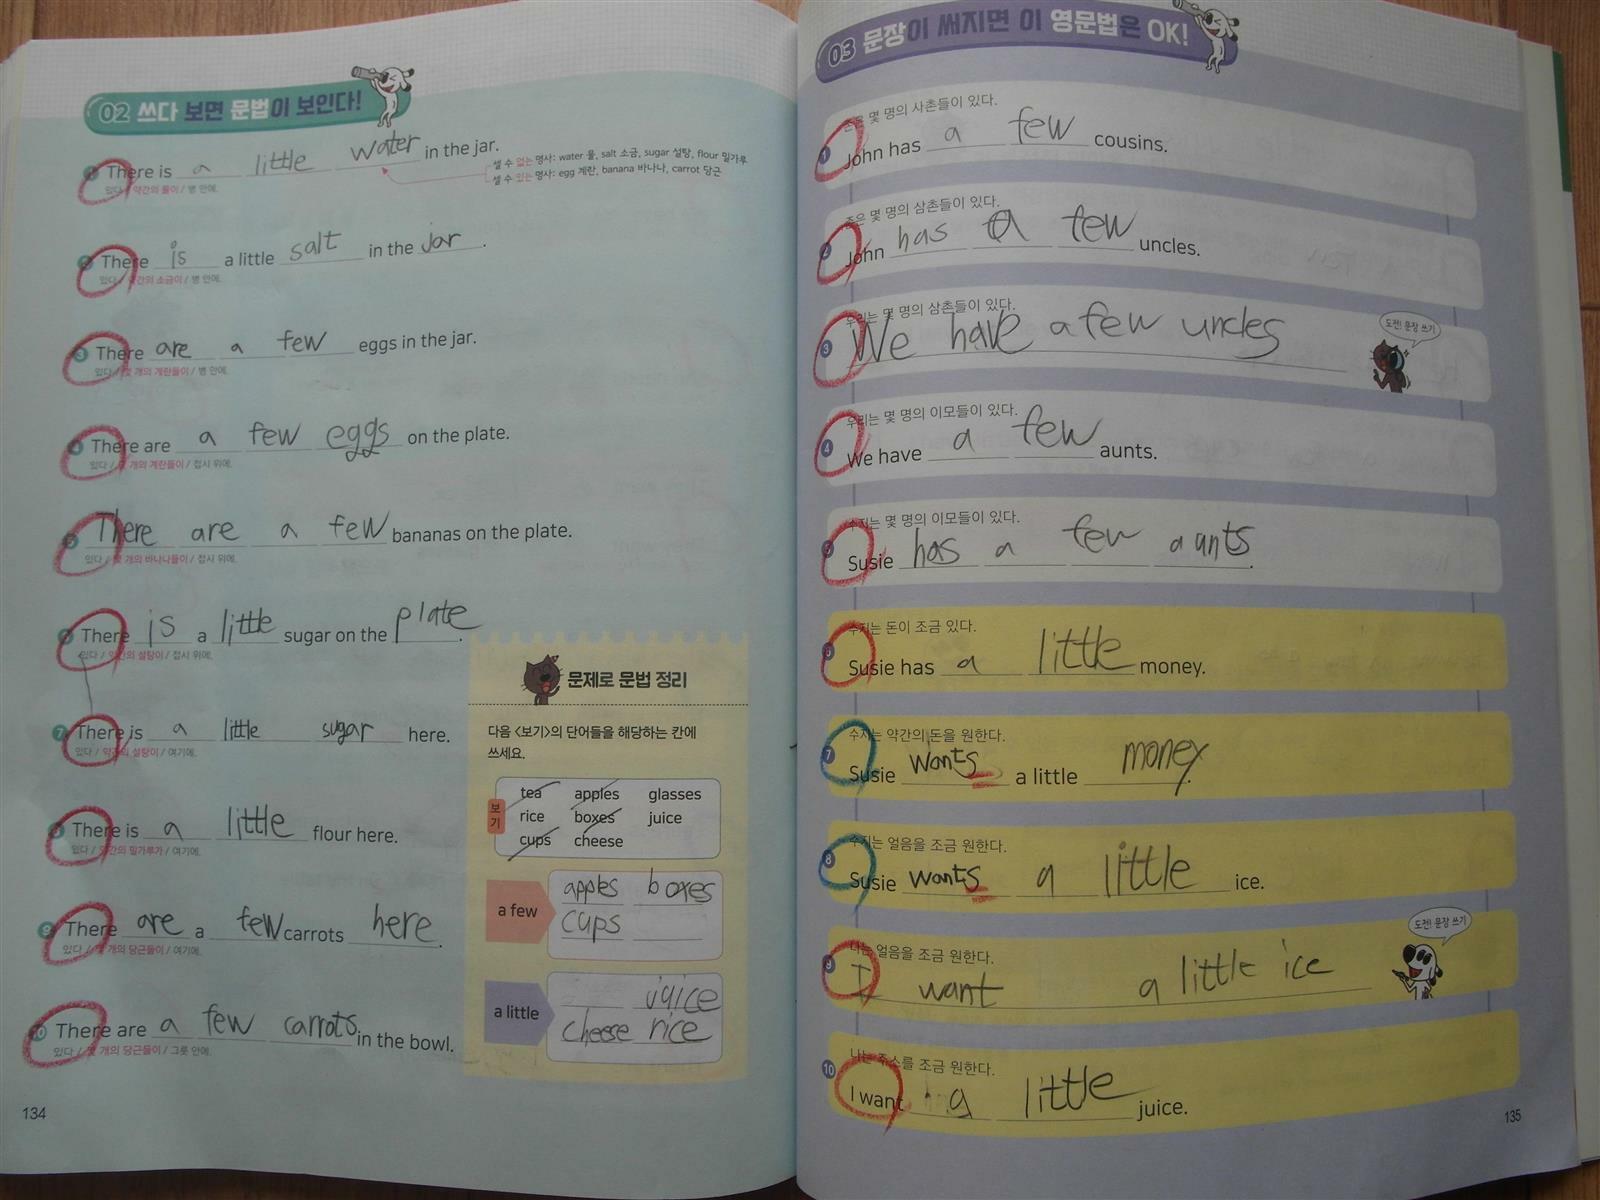 02 쓰다 보면 문법이 보인다!
There is a little water in the jar.
있다 / 약간의 물이 / 병 안에.
셀 수 없는 명사: water 물, salt 소금, sugar 설탕, flour 밀가루
셀 수 있는 명사: egg 계란, banana 바나나, carrot 당근
There is a little salt in the jar.
있다 / 약간의 소금이 / 병 안에.
3 There are a few eggs in the jar.
있다 / 몇 개의 계란들이 / 병 안에.
There are a few eggs on the plate.
있다 / 몇 개의 계란들이 / 접시 위에.
There are a few bananas on the plate.
있다 / 몇 개의 바나나들이 / 접시 위에.
There is a little sugar on the plate.
있다 / 약간의 설탕이 / 접시 위에.
7 There is a little sugar here.
있다 / 약간의 설탕이 / 여기에.
There is a little flour here.
있다 / 약간의 밀가루가 / 여기에.
9 There are a few carrots here.
있다 / 몇 개의 당근들이 / 여기에.
10 There are a few carrots in the bowl.
있다 / 몇 개의 당근들이 / 그릇 안에.
문제로 문법 정리
다음 <보기>의 단어들을 해당하는 칸에
쓰세요.
보기
tea apples glasses
rice boxes juice
cups cheese
a few
apples boxes
cups
a little
juice
cheese rice
134
03 문장이 써지면 이 영문법은 OK!
존은 몇 명의 사촌들이 있다.
1 John has a few cousins.
존은 몇 명의 삼촌들이 있다.
2 John has a few uncles.
우리는 몇 명의 삼촌들이 있다.
3 We have a few uncles
도전! 문장 쓰기
우리는 몇 명의 이모들이 있다.
4 We have a few aunts.
수지는 몇 명의 이모들이 있다.
5 Susie has a few aunts.
수지는 돈이 조금 있다.
6 Susie has a little money.
수지는 약간의 돈을 원한다.
7 Susie wants a little money.
수지는 얼음을 조금 원한다.
8 Susie wants a little ice.
나는 얼음을 조금 원한다.
9 I want a little ice
도전! 문장 쓰기
나는 주스를 조금 원한다.
10 I want a little juice.
135